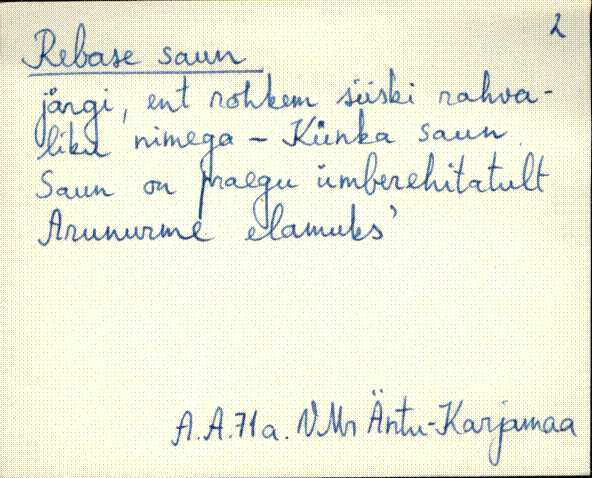 2
Rebase saun
järgi, ent rohkem siiski rahva-
liku nimega - Künka saun.
Saun on praegu ümberehitatult
Arunurme elamuks'
A.A. 71a. VMr Äntu-Karjamaa